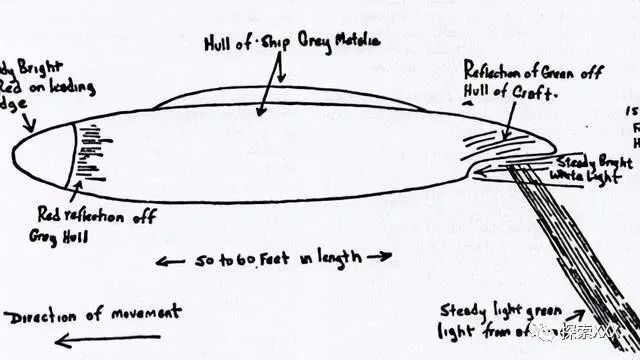 Hull of Ship Grey Metalic
dy Bright
Red on leading
dge
Reflection of Green off
Hull of Craft.
Steady Bright
White light
Red reflection off
Grey Hull
50 to 60 Feet in length
Direction of movement
Steady light green
light from
探索XXX